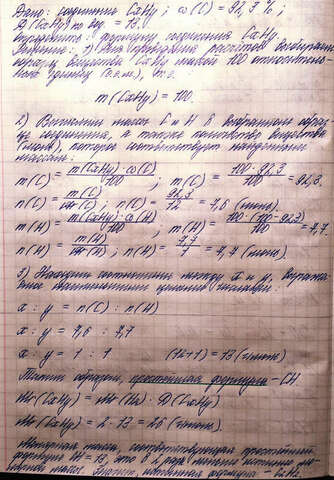 Дано: соединение CxHy; ω(C) = 92,3 %;
D(CxHy) по вод. = 13.
Определить: формулу соединения CxHy.
Решение: 1) Для проведения расчётов выбираем
образец вещества CxHy массой 100 относитель-
ных единиц (о.е.м.), т.е.
m(CxHy) = 100.
2) Вычисляем массы C и H в выбранном образ-
це соединения, а также количества вещества
(моль), которое соответствует найденным
массам:
m(C) = m(CxHy)·ω(C)/100; m(C) = 100·92,3/100 = 92,3.
n(C) = m(C)/M(C); n(C) = 92,3/12 = 7,6 (моль).
m(H) = m(CxHy)·ω(H)/100; m(H) = 100·(100-92,3)/100 = 7,7
n(H) = m(H)/M(H); n(H) = 7,7/1 = 7,7 (моль).
3) Находим соотношение между x и y, выража-
емое целыми числами:
x : y = n(C) : n(H)
x : y = 7,6 : 7,7
x : y = 1 : 1 (12+1) = 13 (г/моль)
Таким образом, простейшая формула – CH
M(CxHy) = M(H₂) · D(CxHy)
M(CxHy) = 2 · 13 = 26 (г/моль).
Молярная масса, соответствующая простейшей
формуле CH = 13, это в 2 раза меньше истинной мо-
лярной массы. Значит, истинная формула – C₂H₂.